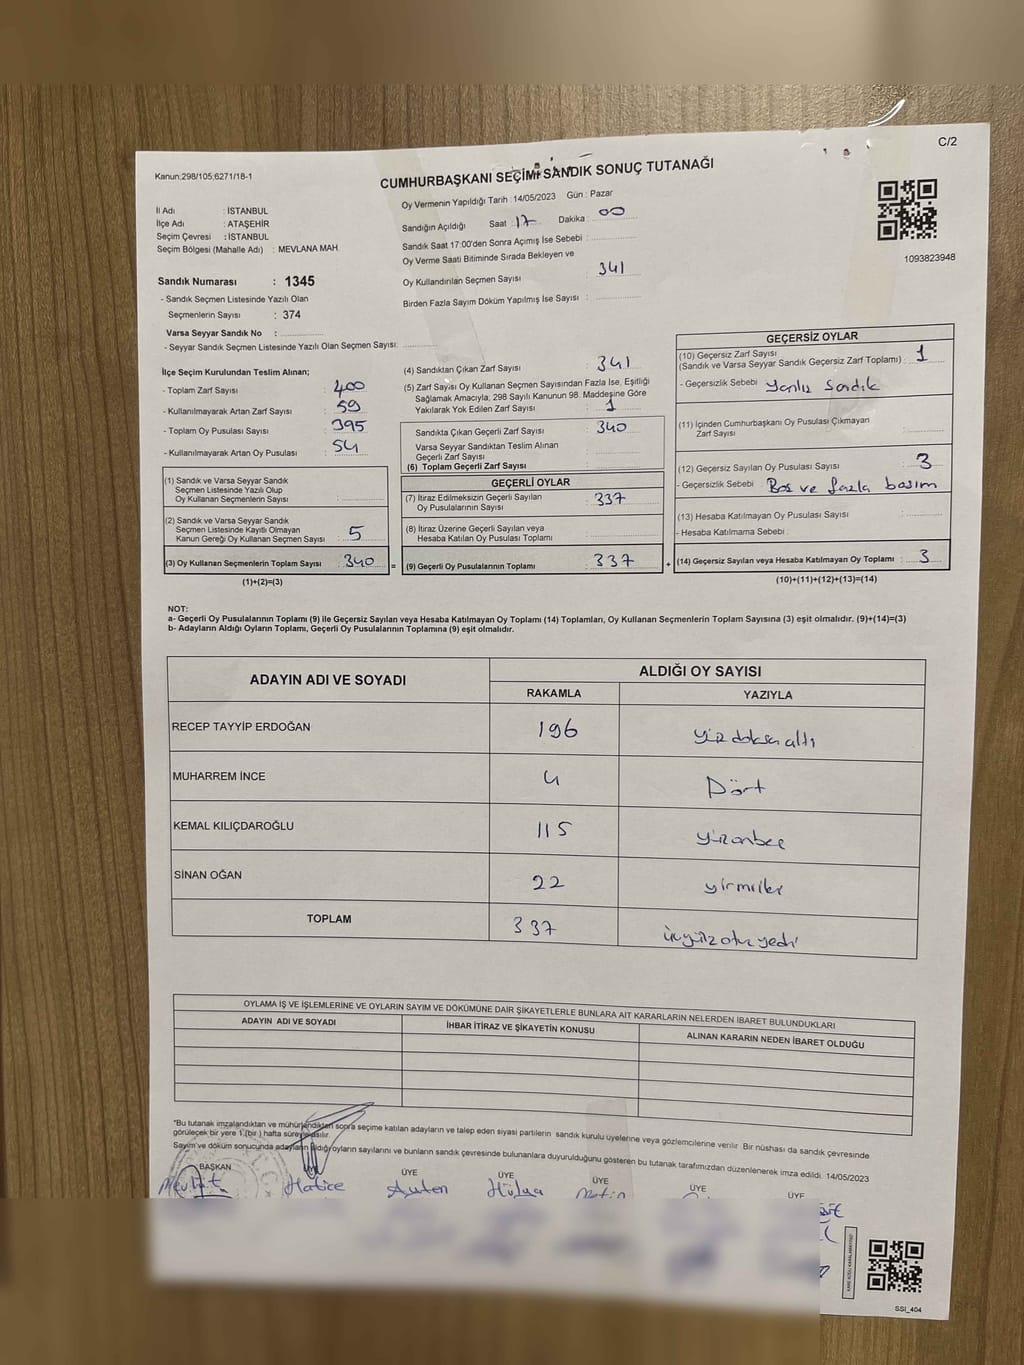 C/2
Kanun:298/105;6271/18-1
CUMHURBAŞKANI SEÇİMİ SANDIK SONUÇ TUTANAĞI
1093823948
İl Adı : İSTANBUL
İlçe Adı : ATAŞEHİR
Seçim Çevresi : İSTANBUL
Seçim Bölgesi (Mahalle Adı) : MEVLANA MAH
Sandık Numarası : 1345
- Sandık Seçmen Listesinde Yazılı Olan
Seçmenlerin Sayısı : 374
Varsa Seyyar Sandık No :
- Seyyar Sandık Seçmen Listesinde Yazılı Olan Seçmen Sayısı:
Oy Vermenin Yapıldığı Tarih : 14/05/2023 Gün : Pazar
Sandığın Açıldığı Saat : 17 Dakika : 00
Sandık Saat 17:00'den Sonra Açımış İse Sebebi :
Oy Verme Saati Bitiminde Sırada Bekleyen ve
Oy Kullandırılan Seçmen Sayısı : 341
Birden Fazla Sayım Döküm Yapılmış İse Sayısı :
İlçe Seçim Kurulundan Teslim Alınan;
- Toplam Zarf Sayısı : 400
- Kullanılmayarak Artan Zarf Sayısı : 59
- Toplam Oy Pusulası Sayısı : 395
- Kullanılmayarak Artan Oy Pusulası : 54
(1) Sandık ve Varsa Seyyar Sandık
Seçmen Listesinde Yazılı Olup
Oy Kullanan Seçmenlerin Sayısı :
(2) Sandık ve Varsa Seyyar Sandık
Seçmen Listesinde Kayıtlı Olmayan
Kanun Gereği Oy Kullanan Seçmen Sayısı : 5
(3) Oy Kullanan Seçmenlerin Toplam Sayısı : 340 =
(1)+(2)=(3)
(4) Sandıktan Çıkan Zarf Sayısı : 341
(5) Zarf Sayısı Oy Kullanan Seçmen Sayısından Fazla İse, Eşitliği
Sağlamak Amacıyla; 298 Sayılı Kanunun 98. Maddesine Göre
Yakılarak Yok Edilen Zarf Sayısı : 1
Sandıkta Çıkan Geçerli Zarf Sayısı : 340
Varsa Seyyar Sandıktan Teslim Alınan
Geçerli Zarf Sayısı :
(6) Toplam Geçerli Zarf Sayısı :
GEÇERLİ OYLAR
(7) İtiraz Edilmeksizin Geçerli Sayılan
Oy Pusulalarının Sayısı : 337
(8) İtiraz Üzerine Geçerli Sayılan veya
Hesaba Katılan Oy Pusulası Toplamı :
(9) Geçerli Oy Pusulalarının Toplamı : 337 +
GEÇERSİZ OYLAR
(10) Geçersiz Zarf Sayısı
(Sandık ve Varsa Seyyar Sandık Geçersiz Zarf Toplamı) : 1
- Geçersizlik Sebebi : Yanlız Sandık
(11) İçinden Cumhurbaşkanı Oy Pusulası Çıkmayan
Zarf Sayısı :
(12) Geçersiz Sayılan Oy Pusulası Sayısı : 3
- Geçersizlik Sebebi : Boş ve fazla basım
(13) Hesaba Katılmayan Oy Pusulası Sayısı :
- Hesaba Katılmama Sebebi :
(14) Geçersiz Sayılan veya Hesaba Katılmayan Oy Toplamı : 3
(10)+(11)+(12)+(13)=(14)
NOT:
a- Geçerli Oy Pusulalarının Toplamı (9) ile Geçersiz Sayılan veya Hesaba Katılmayan Oy Toplamı (14) Toplamları, Oy Kullanan Seçmenlerin Toplam Sayısına (3) eşit olmalıdır. (9)+(14)=(3)
b- Adayların Aldığı Oyların Toplamı, Geçerli Oy Pusulalarının Toplamına (9) eşit olmalıdır.
ADAYIN ADI VE SOYADI ALDIĞI OY SAYISI
RAKAMLA YAZIYLA
RECEP TAYYİP ERDOĞAN 196 yüz doksan altı
MUHARREM İNCE 4 Dört
KEMAL KILIÇDAROĞLU 115 yüzonbeş
SİNAN OĞAN 22 yirmiiki
TOPLAM 337 üçyüz otuz yedi
OYLAMA İŞ VE İŞLEMLERİNE VE OYLARIN SAYIM VE DÖKÜMÜNE DAİR ŞİKAYETLERLE BUNLARA AİT KARARLARIN NELERDEN İBARET BULUNDUKLARI
ADAYIN ADI VE SOYADI İHBAR İTİRAZ VE ŞİKAYETİN KONUSU ALINAN KARARIN NEDEN İBARET OLDUĞU
*Bu tutanak imzalandıktan ve mühürlendikten sonra seçime katılan adayların ve talep eden siyasi partilerin sandık kurulu üyelerine veya gözlemcilerine verilir. Bir nüshası da sandık çevresinde
görülecek bir yere 1 (bir ) hafta süreyle asılır.
Sayım ve döküm sonucunda adayların aldığı oyların sayılarını ve bunların sandık çevresinde bulunanlara duyurulduğunu gösteren bu tutanak tarafımızdan düzenlenerek imza edildi. 14/05/2023
BAŞKAN ÜYE ÜYE ÜYE ÜYE ÜYE ÜYE
Mevlüt Hatice Ayten Hülya Metin
SSI_404